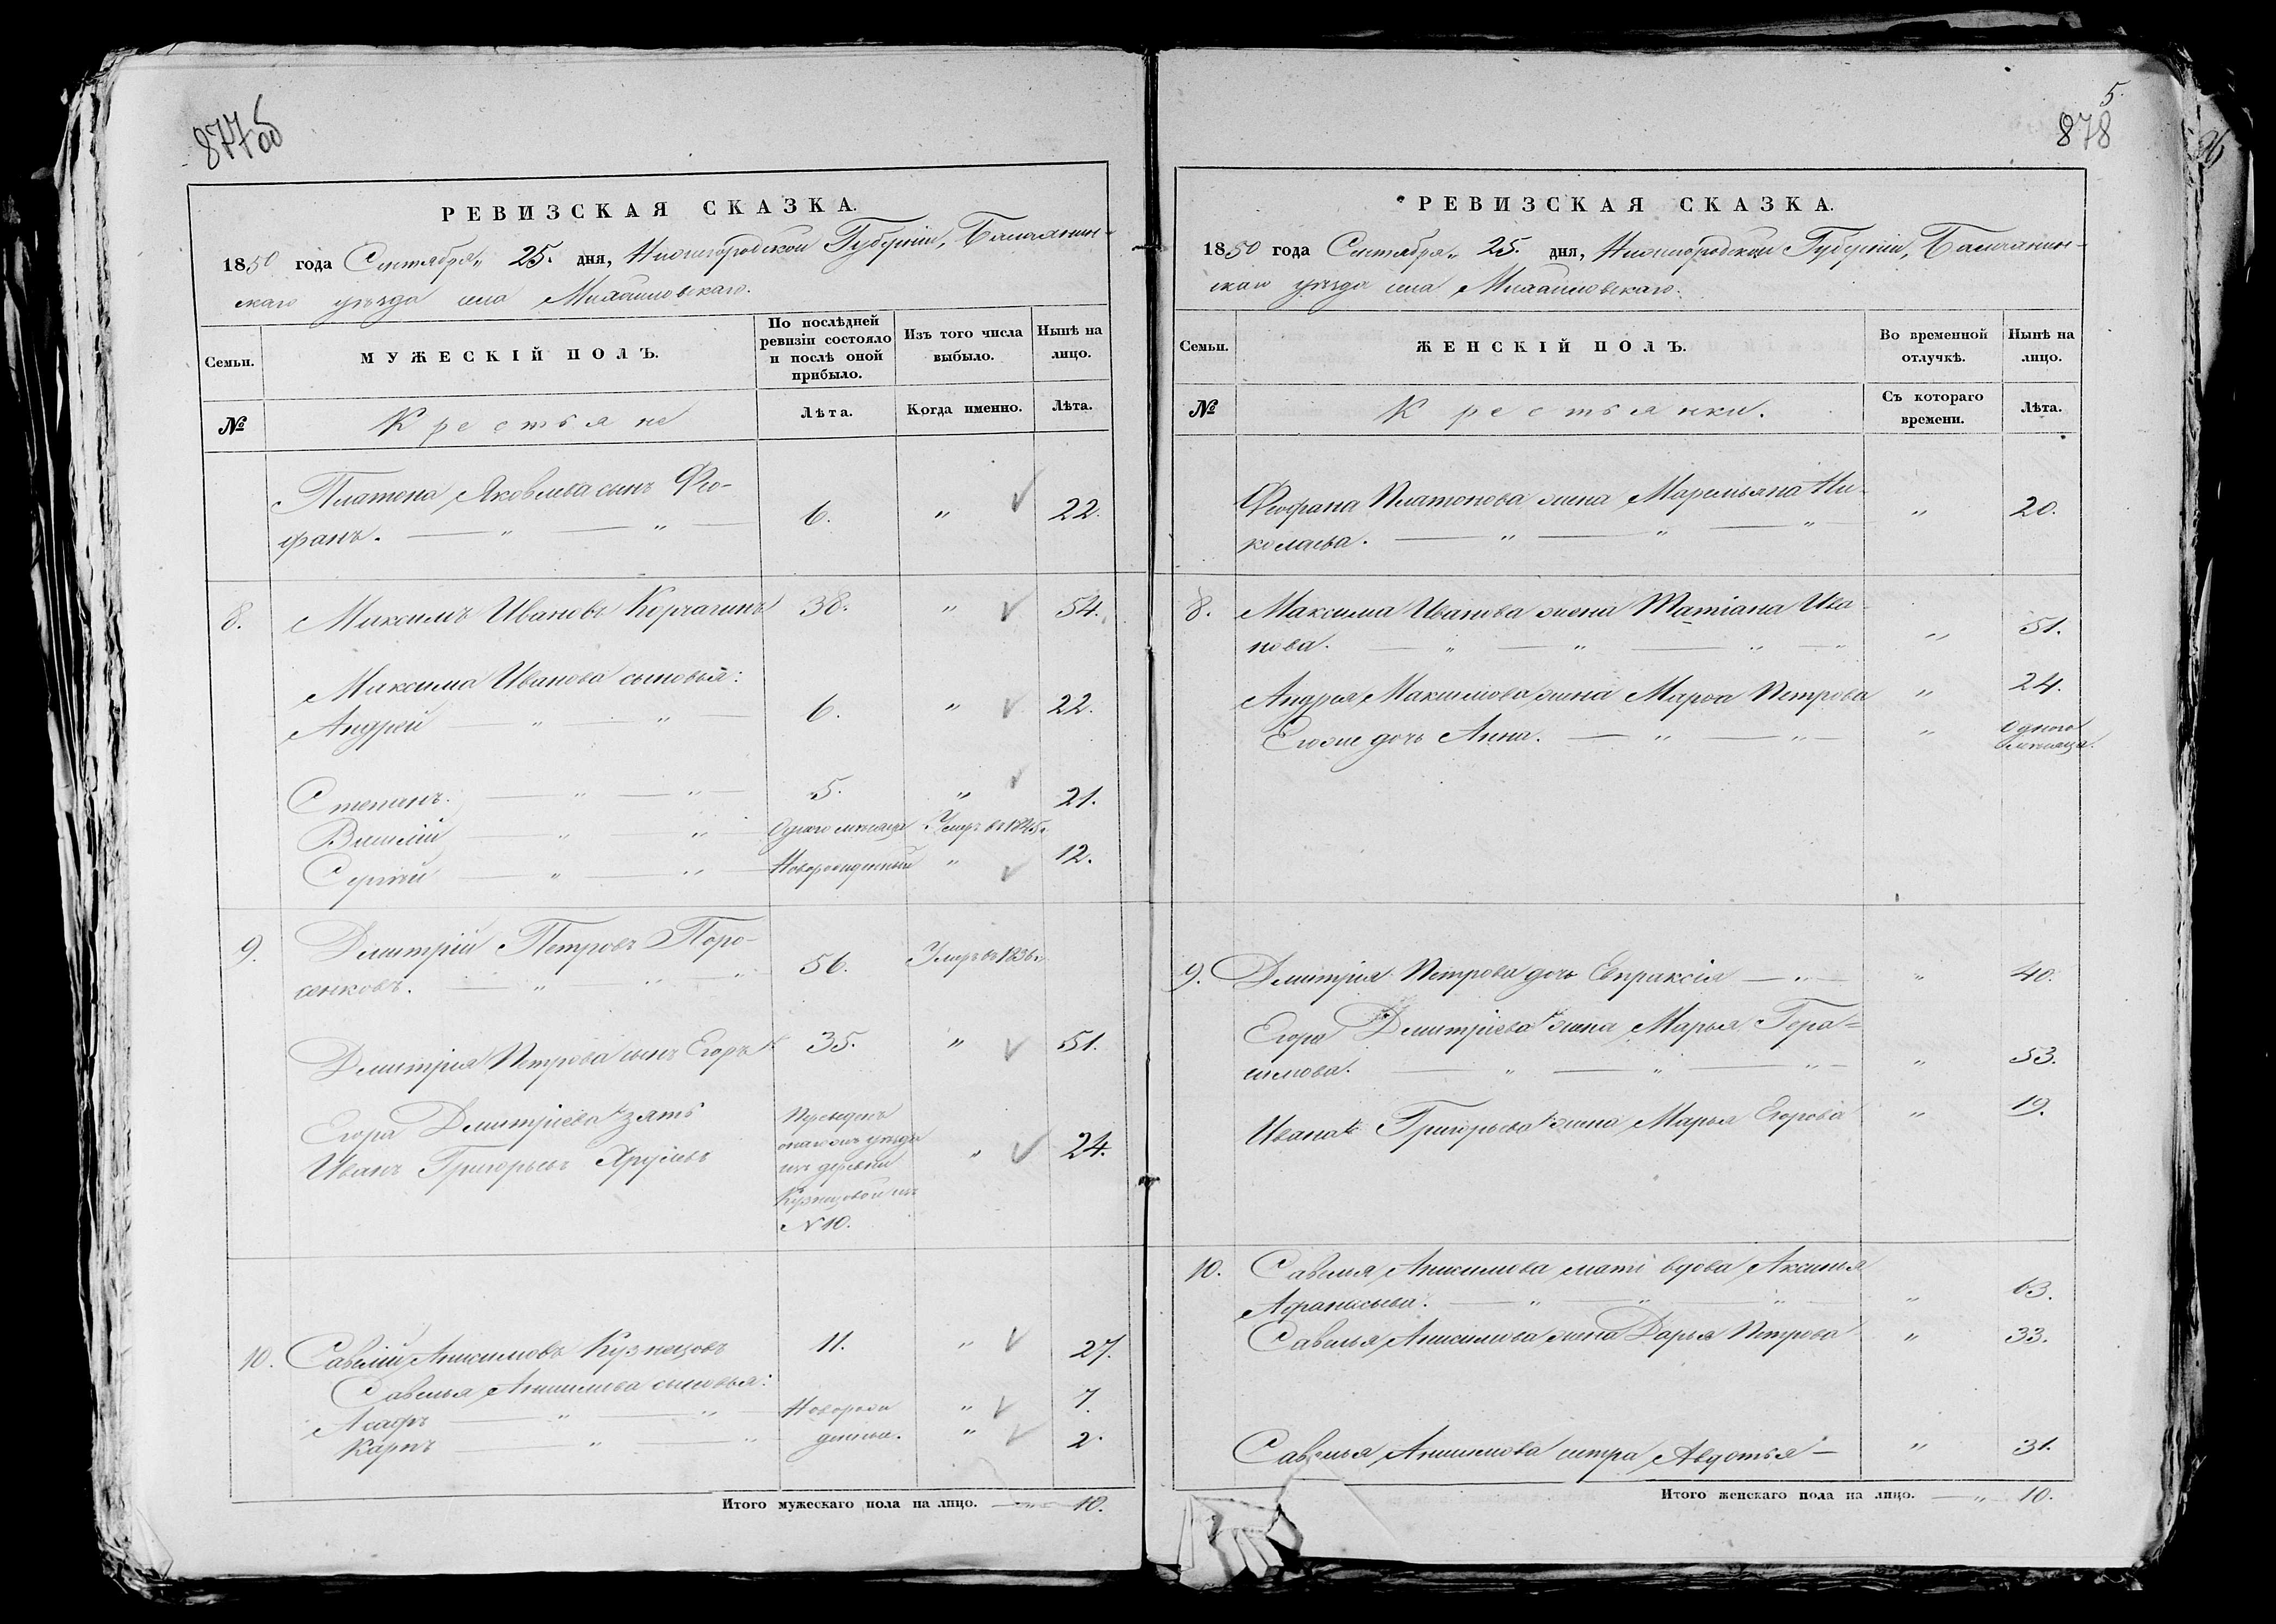 877 об
РЕВИЗСКАЯ СКАЗКА.
1850 года Сентября „ 25. дня, Нижегородской Губерніи, Балахнин-
скаго уѣзда села Михайловскаго.
Семьи. МУЖЕСКІЙ ПОЛЪ. По послѣдней ревизіи состояло и послѣ оной прибыло. Изъ того числа выбыло. Нынѣ на лицо.
№ Крестьяне Лѣта. Когда именно. Лѣта.
Платона Яковлева сынъ Фео-
фанъ. — „ — „ — 6. „ 22.
8. Максимъ Ивановъ Корчагинъ 38. „ 54.
Максима Иванова сыновья:
Андрей — „ — „ — 6. „ 22.
Степанъ. — „ — „ — 5. „ 21.
Василій — „ — „ — Одного мѣсяца Умеръ въ 1845г.
Сергѣй — „ — „ — Новорожденный „ 12.
9. Дмитрій Петровъ Поро-
сенковъ. — „ — „ — 56. Умеръ въ 1836г.
Дмитрія Петрова сынъ Егоръ 35. „ 51.
Егора Дмитріева зять
Иванъ Григорьевъ
изъ деревни
Кузнецовой изъ
№ 10.
„ 24.
10. Савелій Анисимовъ Кузнецовъ 11. „ 27.
Савелья Анисимова сыновья:
Асафъ — „ — „ — Новорож „ 7.
Карпъ — „ — „ — денные. „ 2.
Итого мужескаго пола на лицо. — „ — 10.
5.
878
РЕВИЗСКАЯ СКАЗКА.
1850 года Сентября „ 25. дня, Нижегородской Губерніи, Балахнин-
скаго уѣзда села Михайловскаго.
Семьи. ЖЕНСКІЙ ПОЛЪ. Во временной отлучкѣ. Нынѣ на лицо.
№ Крестьянки. Съ котораго времени. Лѣта.
Феофана Платонова жена Маремьяна Ни-
колаева. — „ — „ — „ „ 20.
8. Максима Иванова жена Татіана Ива-
нова. — „ — „ — „ — „ „ 51.
Андрея Максимова жена Марѳа Петрова „ 24.
Его же дочь Анна. — „ — „ — „ Одного мѣсяца.
9. Дмитрія Петрова дочь Евпраксія — „ — „ 40.
Егора Дмитріева жена Марья Гера-
симова. — „ — „ — „ — „ 53.
Ивана Григорьева жена Марья Егорова „ 19.
10. Савелья Анисимова мать вдова Аксинья
Афанасьева. — „ — „ — „ „ 63.
Савелья Анисимова жена Дарья Петрова „ 33.
Савелья Анисимова сестра Авдотья — „ 31.
Итого женскаго пола на лицо. — „ — 10.